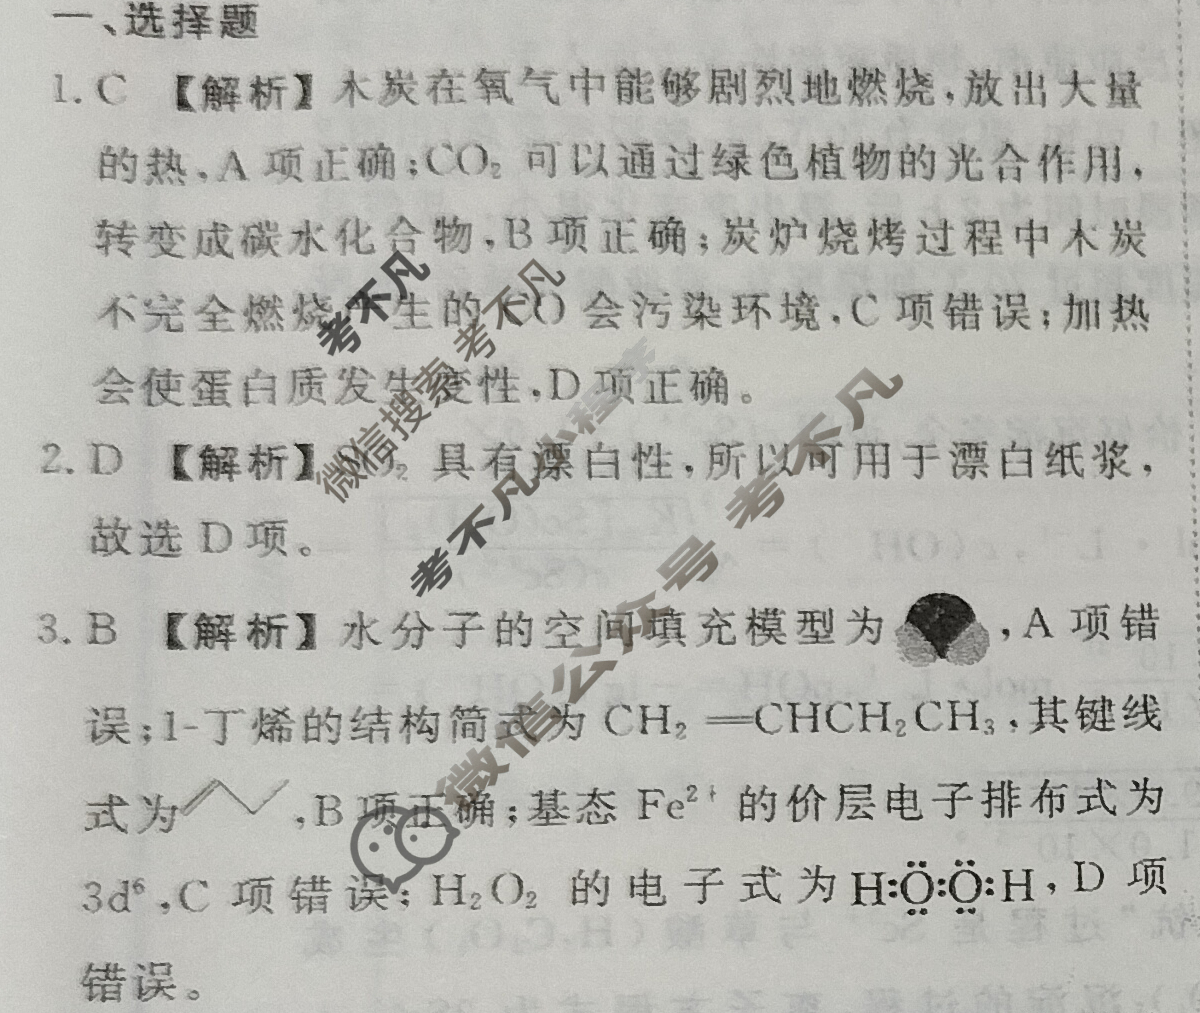 一、选择题
1. C 【解析】木炭在氧气中能够剧烈地燃烧,放出大量
的热,A 项正确;CO₂ 可以通过绿色植物的光合作用,
转变成碳水化合物,B 项正确;炭炉烧烤过程中木炭
不完全燃烧 生的 CO 会污染环境,C 项错误;加热
会使蛋白质发生变性,D 项正确。
2. D 【解析】 具有漂白性,所以可用于漂白纸浆,
故选 D 项。
3. B 【解析】水分子的空间填充模型为 ,A 项错
误;1-丁烯的结构简式为 CH₂═CHCH₂CH₃,其键线
式为 ,B 项正确;基态 Fe²⁺ 的价层电子排布式为
3d⁶,C 项错误;H₂O₂ 的电子式为 H:Ö:Ö:H,D 项
错误。
考不凡
微信搜索 考不凡
考不凡小程序
微信公众号 考不凡